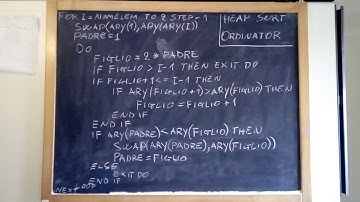 FOR I = NUMELEM TO 2 STEP -1
SWAP(ARY(1), ARY(ARY(I)
PADRE = 1
DO
FIGLIO = 2 * PADRE
IF FIGLIO > I-1 THEN EXIT DO
IF FIGLIO+1 <= I-1 THEN
IF ARY(FIGLIO+1) > ARY(FIGLIO) THEN
FIGLIO = FIGLIO + 1
END IF
END IF
IF ARY(PADRE) < ARY(FIGLIO) THEN
SWAP(ARY(PADRE), ARY(FIGLIO))
PADRE = FIGLIO
ELSE
EXIT DO
END IF
LOOP
NEXT
HEAP SORT
ORDINATOR